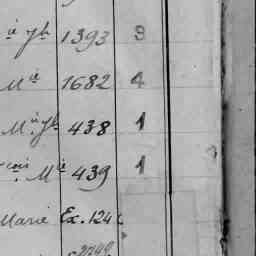 ie Jh 1393 3
Mie 1682 4
Mie Jh 438 1
cois Mie 439 1
Marie Ex. 124